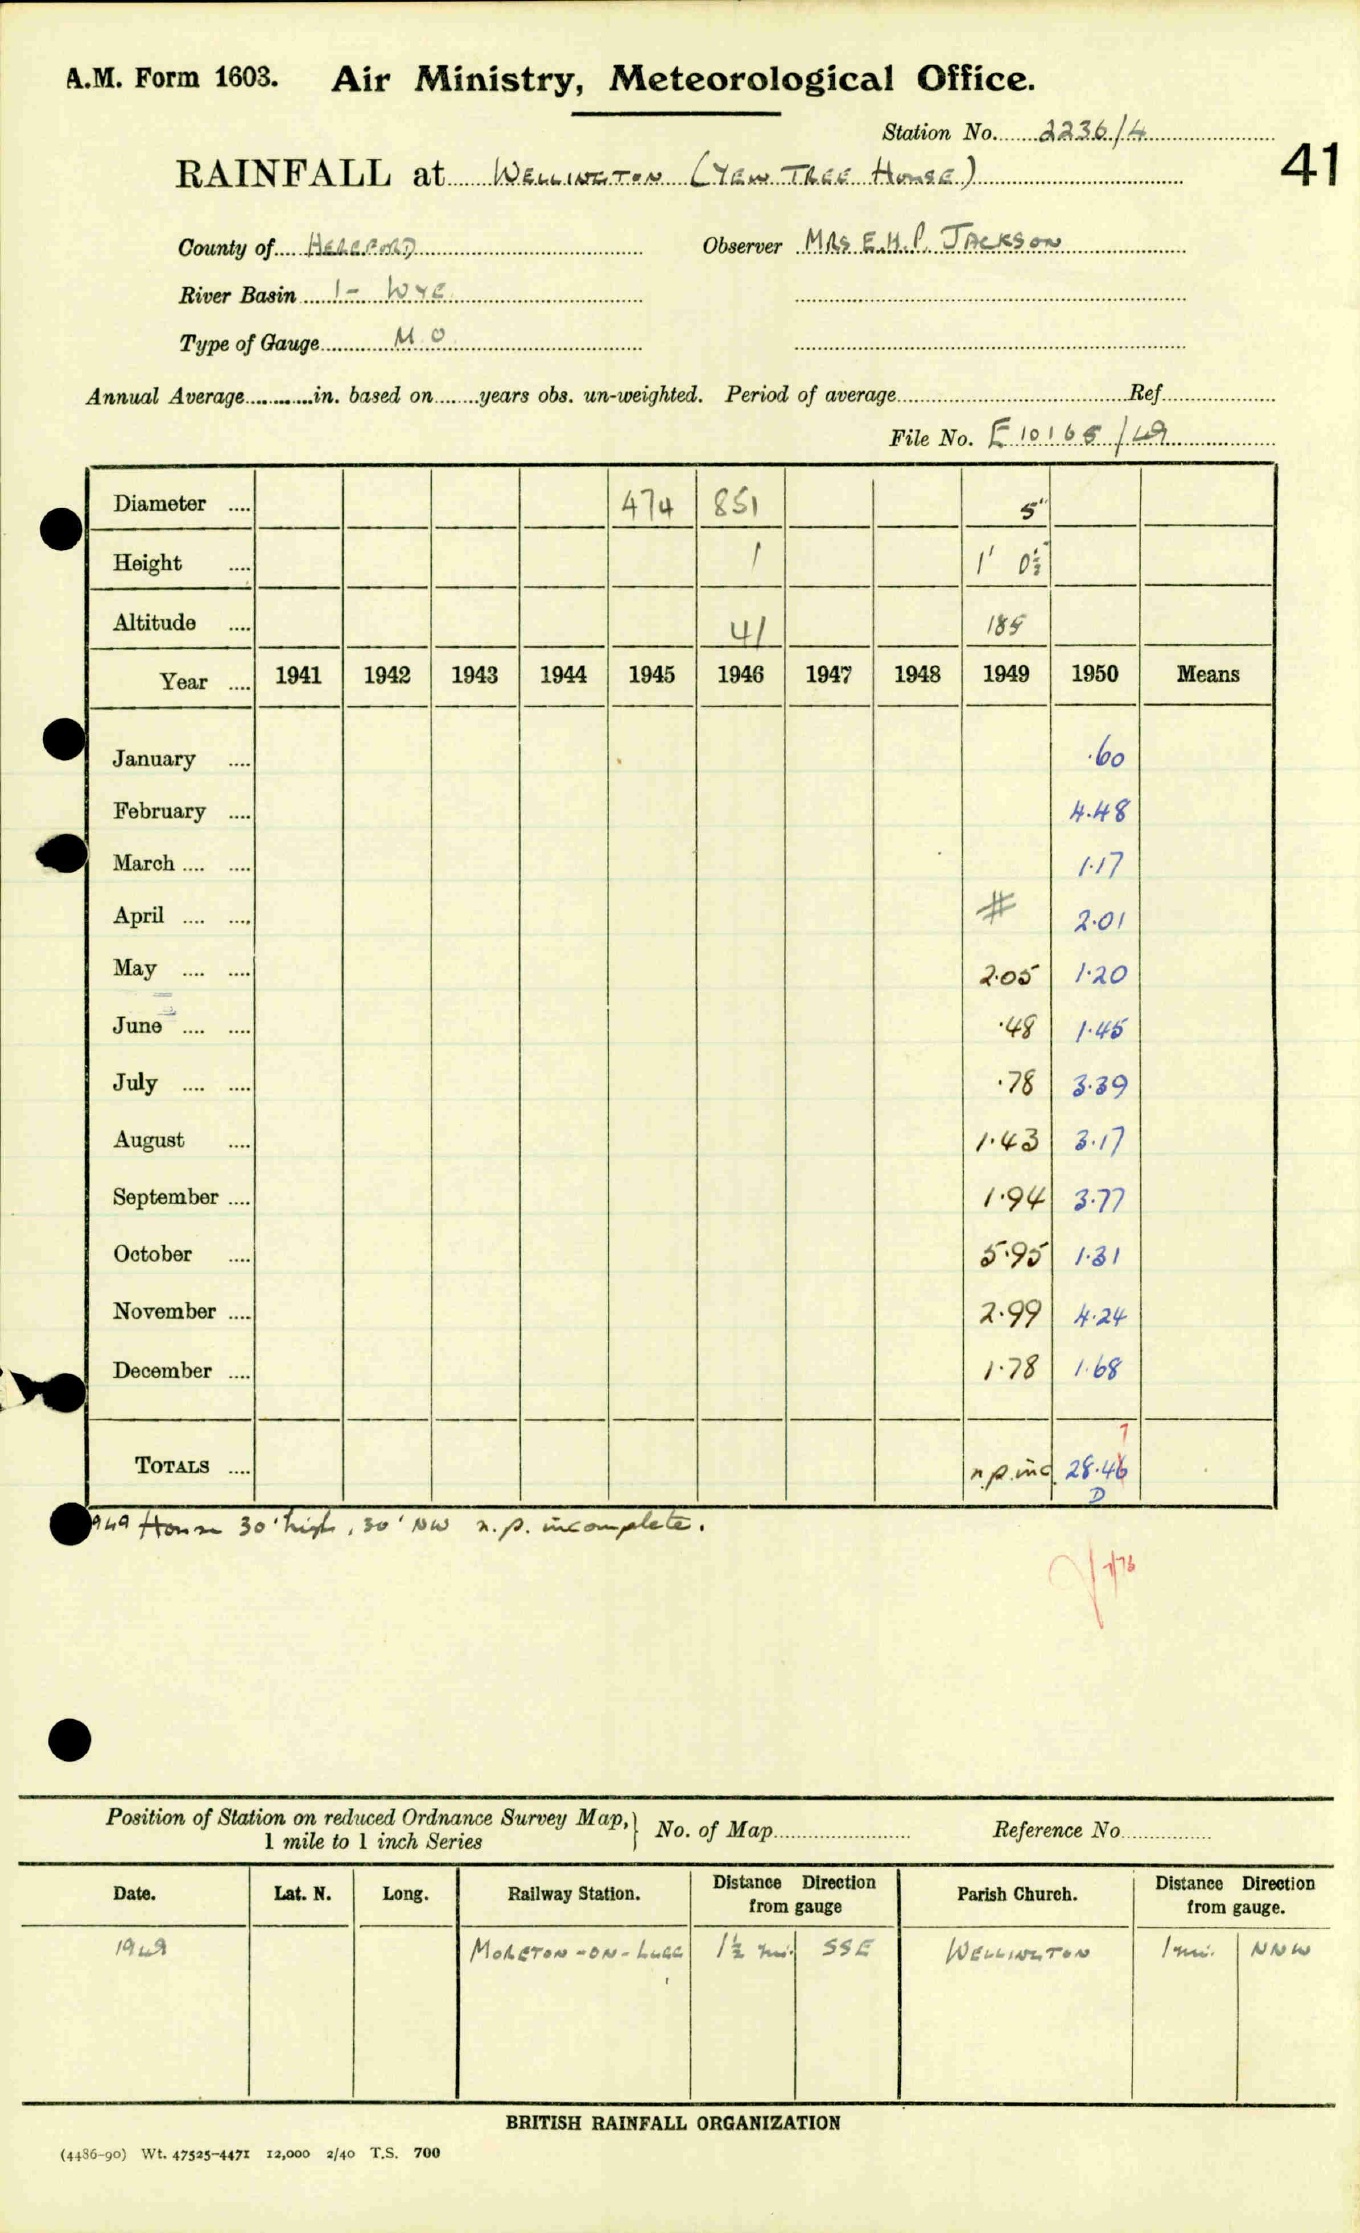 A.M. Form 1603. Air Ministry, Meteorological Office.
Station No. 2236/4
41
RAINFALL at WELLINGTON (YEW TREE HOUSE)
County of HEREFORD Observer MRS E.H.P. JACKSON
River Basin 1- WYE
Type of Gauge M O
Annual Average in. based on years obs. un-weighted. Period of average Ref
File No. E 10165/49
Diameter 474 851 5"
Height 1 1' 0½"
Altitude 41 185
Year 1941 1942 1943 1944 1945 1946 1947 1948 1949 1950 Means
January .60
February 4.48
March 1.17
April # 2.01
May 2.05 1.20
June .48 1.45
July .78 3.39
August 1.43 3.17
September 1.94 3.77
October 5.95 1.31
November 2.99 4.24
December 1.78 1.68
7
TOTALS n.p. inc. 28.46
D
949 House 30' high, 30' NW n.p. incomplete.
Position of Station on reduced Ordnance Survey Map, } No. of Map Reference No
1 mile to 1 inch Series
Date. Lat. N. Long. Railway Station. Distance Direction from gauge Parish Church. Distance Direction from gauge.
1949 MORETON-ON-LUGG 1½ mi. SSE WELLINGTON 1 mi. NNW
BRITISH RAINFALL ORGANIZATION
(4486-90) Wt. 47525-4471 12,000 2/40 T.S. 700